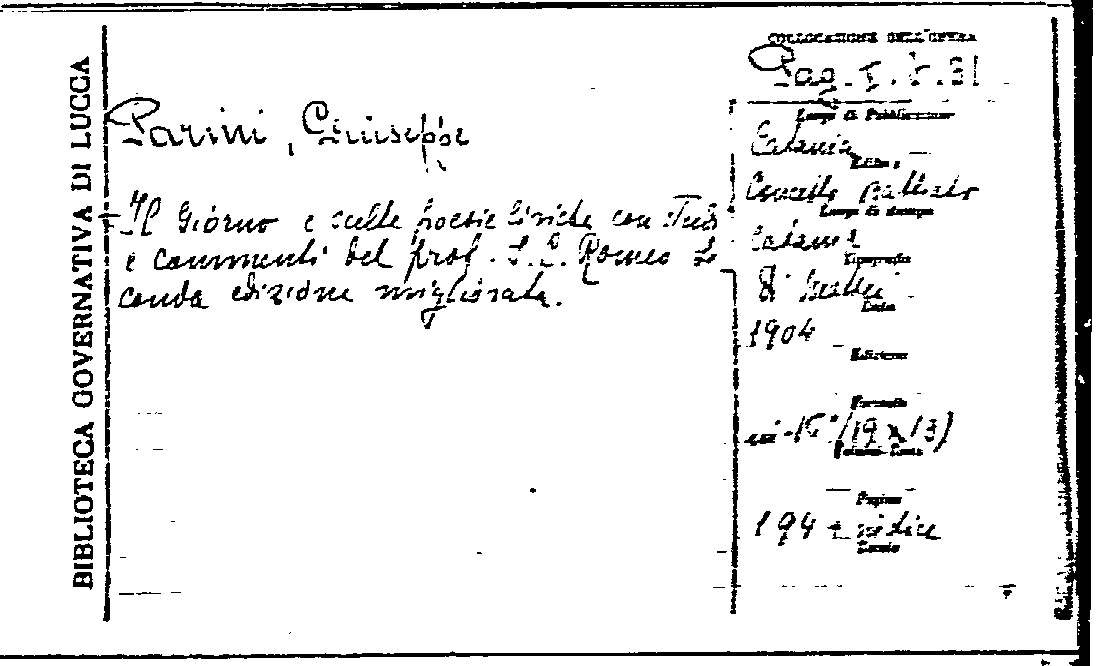 BIBLIOTECA GOVERNATIVA DI LUCCA
COLLOCAZIONE DELL'OPERA
Pag. I. 31
Parini, Giuseppe
Il Giorno e scelte poesie liriche con
e commenti del prof. L. Romeo Se
conda edizione migliorata.
Luogo di Pubblicazione
Catania
Editore
Concetto Battiato
Luogo di stampa
Catania
Tipografia
Mattei
Data
1904
Edizione
Formato
in-16° (19 x 13)
Pagine
194 + indice